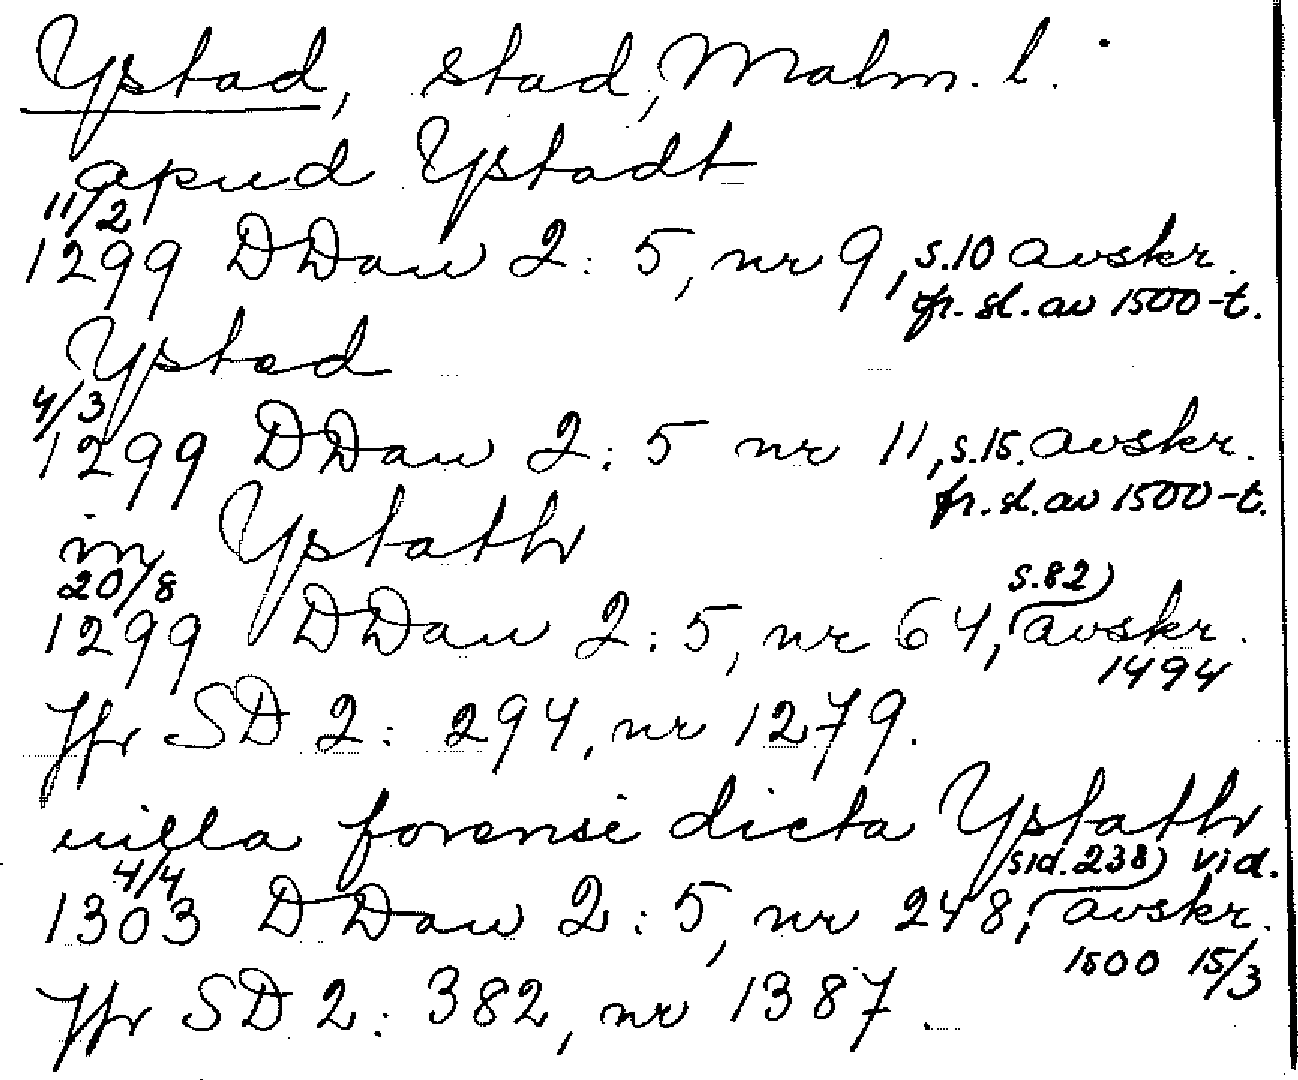 Ystad, stad, Malm. l.
apud Ystadt
11/2
1299 DDan 2: 5, nr 9, s.10 avskr.
fr. sl. av 1500-t.
Ysted
4/3
1299 DDan 2: 5 nr 11, s.15. avskr.
fr. sl. av 1500-t.
in Ystathr
20/8 s.82)
1299 DDan 2: 5, nr 64, avskr.
1494
Jfr SD 2: 294, nr 1279.
uilla forensi dicta Ystathr
4/4 sid. 238) vid.
1303 DDan 2: 5, nr 248, avskr.
1500 15/3
Jfr SD 2: 382, nr 1387.